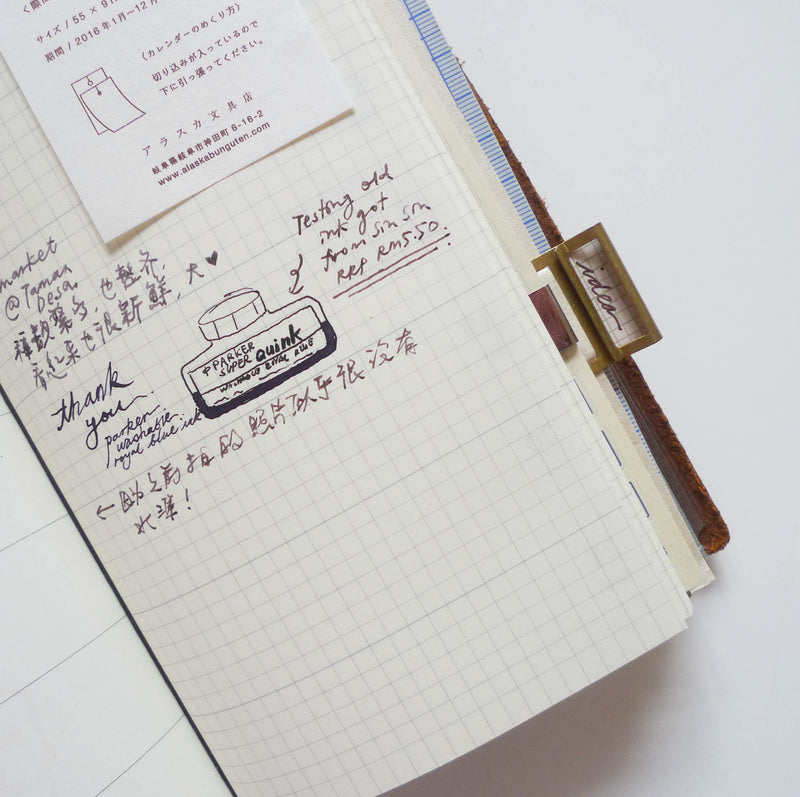 サイズ / 55 ×
期間 / 2016年1月〜12月
〈カレンダーのめくり方〉
切り込みが入っているので
下に引っ張ってください。
アラスカ文具店
岐阜県岐阜市神田町 8-16-2
www.alaskabunguten.com
Testing old
ink got
from Sin Sin
RRP RM5.50.
idea
market
@Taman
Desa.
也整齐,
也很新鮮,大♥
PARKER
SUPER Quink
WASHABLE ROYAL BLUE
thank
you
parker
washable
royal blue ink
← 之前拍的照片似乎很没有
水準!